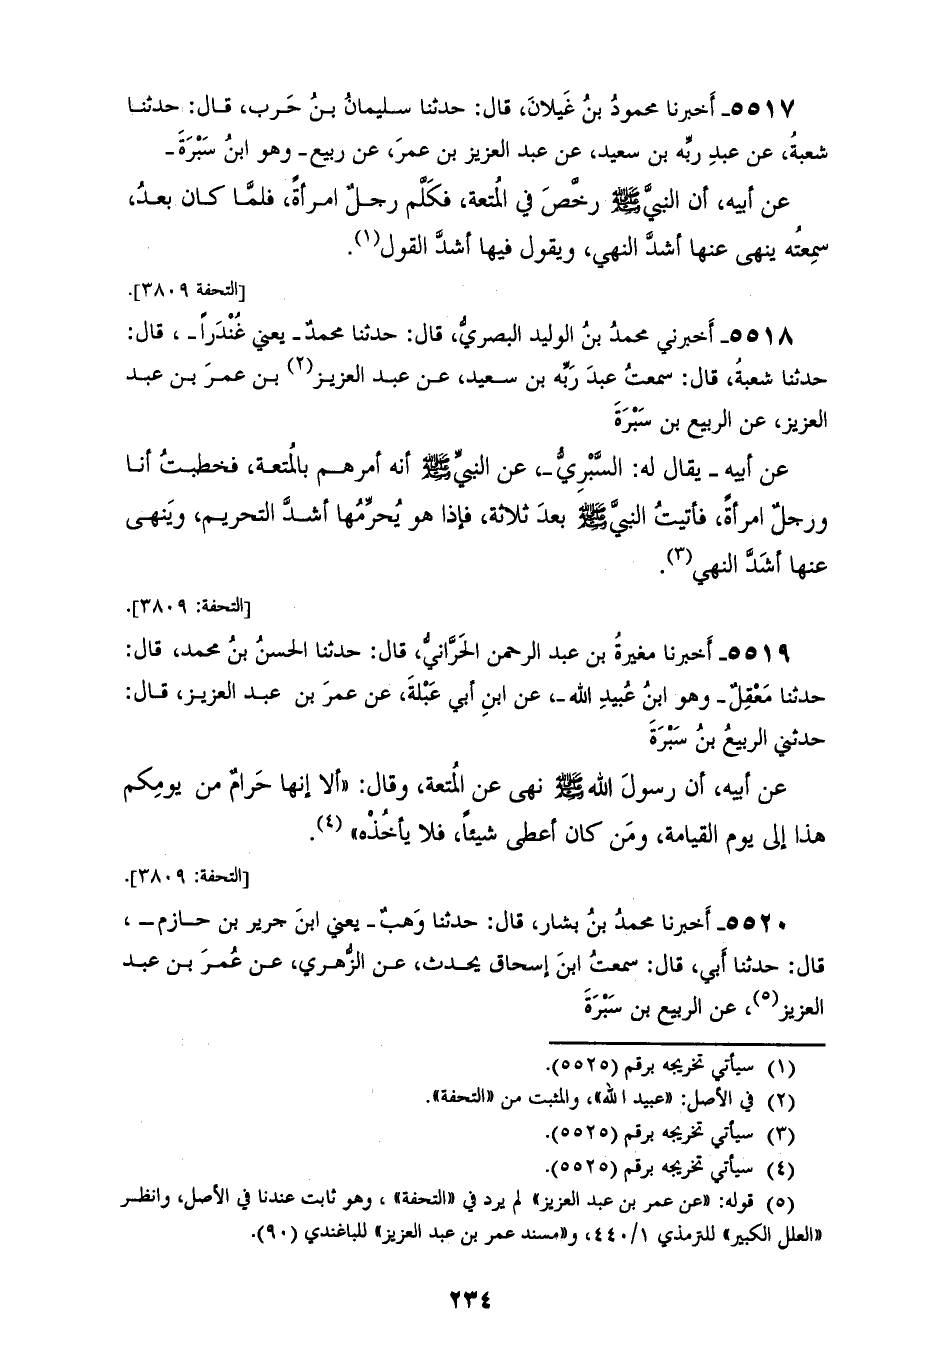 ٥٥١٧ـ أَخبرنا محمودُ بنُ غَيلانَ، قال: حدثنا سليمانُ بنُ حَرب، قال: حدثنا
شعبةُ، عن عبدِ ربِّه بن سعيد، عن عبد العزيز بن عمرَ، عن ربيع ـ وهو ابنُ سَبْرَةَ ـ
عن أبيه، أن النبيَّ ﷺ رخَّصَ في المُتعة، فكَلَّم رجلٌ امرأةً، فلمَّا كان بعدُ،
سمِعتُه ينهى عنها أشدَّ النهي، ويقول فيها أشدَّ القول(١).
[التحفة ٣٨٠٩].
٥٥١٨ـ أَخبرني محمدُ بنُ الوليد البصريُّ، قال: حدثنا محمدٌ ـ يعني غُنْدَراً ـ ، قال:
حدثنا شعبةُ، قال: سمعتُ عبدَ رَبِّه بن سعيد، عن عبد العزيز(٢) بن عمرَ بن عبد
العزيز، عن الربيع بن سَبْرَةَ
عن أبيه ـ يقال له: السَّبْرِيُّ ـ، عن النبيِّ ﷺ أنه أمرهم بالمُتعة، فخطبتُ أنا
ورجلٌ امرأةً، فأتيتُ النبيَّ ﷺ بعدَ ثلاثة، فإذا هو يُحرِّمُها أشدَّ التحريم، ويَنهى
عنها أشَدَّ النهي(٣).
[التحفة: ٣٨٠٩].
٥٥١٩ـ أَخبرنا مغيرةُ بن عبد الرحمن الحَرَّانيُّ، قال: حدثنا الحسنُ بنُ محمد، قال:
حدثنا مَعْقِلٌ ـ وهو ابنُ عُبيدِ الله ـ، عن ابنِ أبي عَبْلةَ، عن عمرَ بن عبد العزيز، قال:
حدثني الربيعُ بنُ سَبْرَةَ
عن أبيه، أن رسولَ الله ﷺ نهى عن المُتعة، وقال: «ألا إنها حَرامٌ من يومِكم
هذا إلى يوم القيامة، ومَن كان أعطى شيئاً، فلا يأخُذْه» (٤).
[التحفة: ٣٨٠٩].
٥٥٢٠ـ أَخبرنا محمدُ بنُ بشار، قال: حدثنا وَهبٌ ـ يعني ابنَ جرير بن حازم ـ ،
قال: حدثنا أَبي، قال: سمعتُ ابنَ إسحاق يحدث، عن الزُّهري، عن عُمرَ بن عبد
العزيز(٥)، عن الربيع بن سَبْرَةَ
(١) سيأتي تخريجه برقم (٥٥٢٥).
(٢) في الأصل: «عبيد الله»، والمثبت من «التحفة».
(٣) سيأتي تخريجه برقم (٥٥٢٥).
(٤) سيأتي تخريجه برقم (٥٥٢٥).
(٥) قوله: «عن عمر بن عبد العزيز» لم يرد في «التحفة» ، وهو ثابت عندنا في الأصل، وانظر
«العلل الكبير» للترمذي ٤٤٠/١، و«مسند عمر بن عبد العزيز» للباغندي (٩٠).
٢٣٤